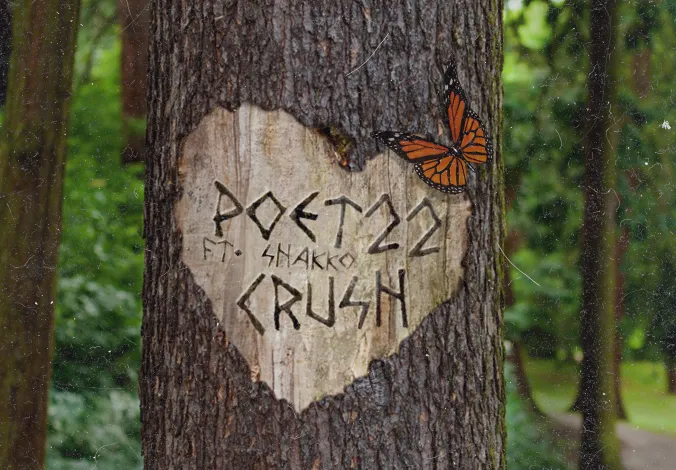 POET22
FT. SHAKKO
CRUSH